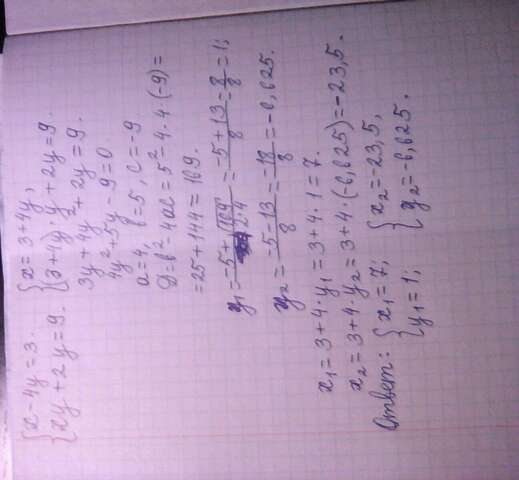 {x-4y=3. {x=3+4y,
{xy+2y=9. {(3+4y)·y+2y=9.
3y+4y²+2y=9.
4y²+5y-9=0
a=4, b=5, c=-9
D=b²-4ac=5²-4·4·(-9)=
=25+144=169.
y₁=(-5+√169)/(2·4)=(-5+13)/8=8/8=1;
y₂=(-5-13)/8=-18/8=-6,625.
x₁=3+4·y₁=3+4·1=7.
x₂=3+4·y₂=3+4·(-6,625)=-23,5.
Ответ: {x₁=7; {x₂=-23,5,
{y₁=1; {y₂=-6,625.